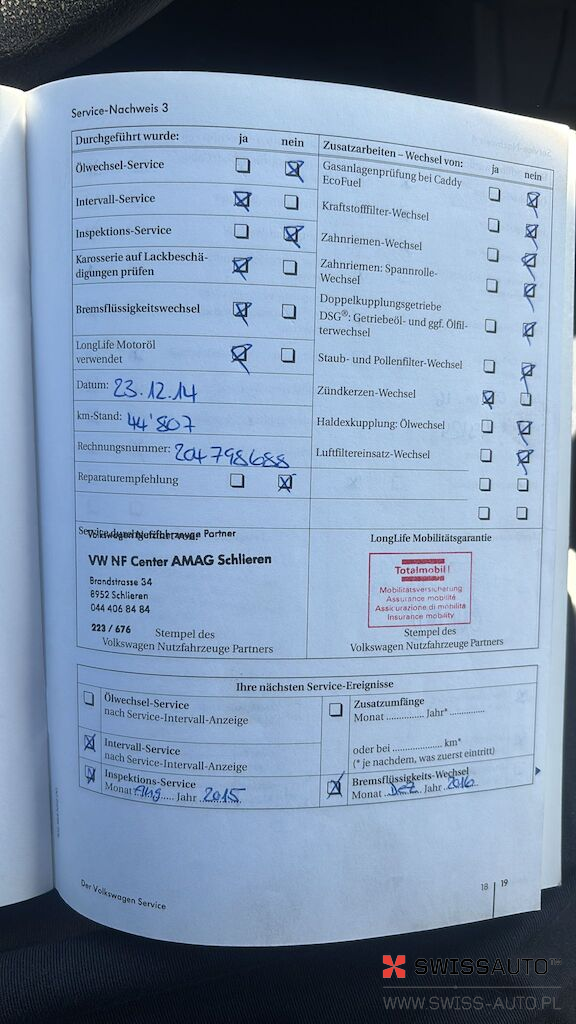 Service-Nachweis 3
Durchgeführt wurde: ja nein
Ölwechsel-Service
Intervall-Service
Inspektions-Service
Karosserie auf Lackbeschä-
digungen prüfen
Bremsflüssigkeitswechsel
LongLife Motoröl
verwendet
Datum: 23.12.14
km-Stand: 44'807
Rechnungsnummer: 204798688
Reparaturempfehlung
Zusatzarbeiten – Wechsel von: ja nein
Gasanlagenprüfung bei Caddy
EcoFuel
Kraftstofffilter-Wechsel
Zahnriemen-Wechsel
Zahnriemen: Spannrolle-
Wechsel
Doppelkupplungsgetriebe
DSG®: Getriebeöl- und ggf. Ölfil-
terwechsel
Staub- und Pollenfilter-Wechsel
Zündkerzen-Wechsel
Haldexkupplung: Ölwechsel
Luftfiltereinsatz-Wechsel
Service durchgeführt von:
Volkswagen Nutzfahrzeuge Partner
VW NF Center AMAG Schlieren
Brandstrasse 34
8952 Schlieren
044 406 84 84
223 / 676
Stempel des
Volkswagen Nutzfahrzeuge Partners
LongLife Mobilitätsgarantie
Totalmobil!
Mobilitätsversicherung
Assurance mobilité
Assicurazione di mobilità
Insurance mobility
Stempel des
Volkswagen Nutzfahrzeuge Partners
Ihre nächsten Service-Ereignisse
Ölwechsel-Service
nach Service-Intervall-Anzeige
Intervall-Service
nach Service-Intervall-Anzeige
Inspektions-Service
Monat Aug Jahr 2015
Zusatzumfänge
Monat .............. Jahr* ..............
oder bei .................... km*
(* je nachdem, was zuerst eintritt)
Bremsflüssigkeits-Wechsel
Monat Dez Jahr 2016
Der Volkswagen Service
18 | 19
SWISSAUTO
WWW.SWISS-AUTO.PL